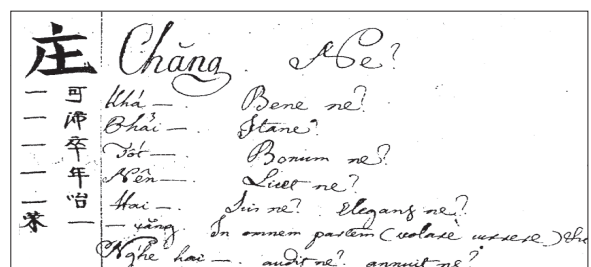 庄 Chăng . Ne?
可 一 Khá — . Bene ne?
沛 一 Phải — . Itane?
卒 一 Tót — . Bonum ne?
年 一 Nên — . Licet ne?
咍 一 Hai — . Elegans ne?
一 — xăng . In omnem partem (volare currere)
Nghe hai — . audis ne? annuit ne?